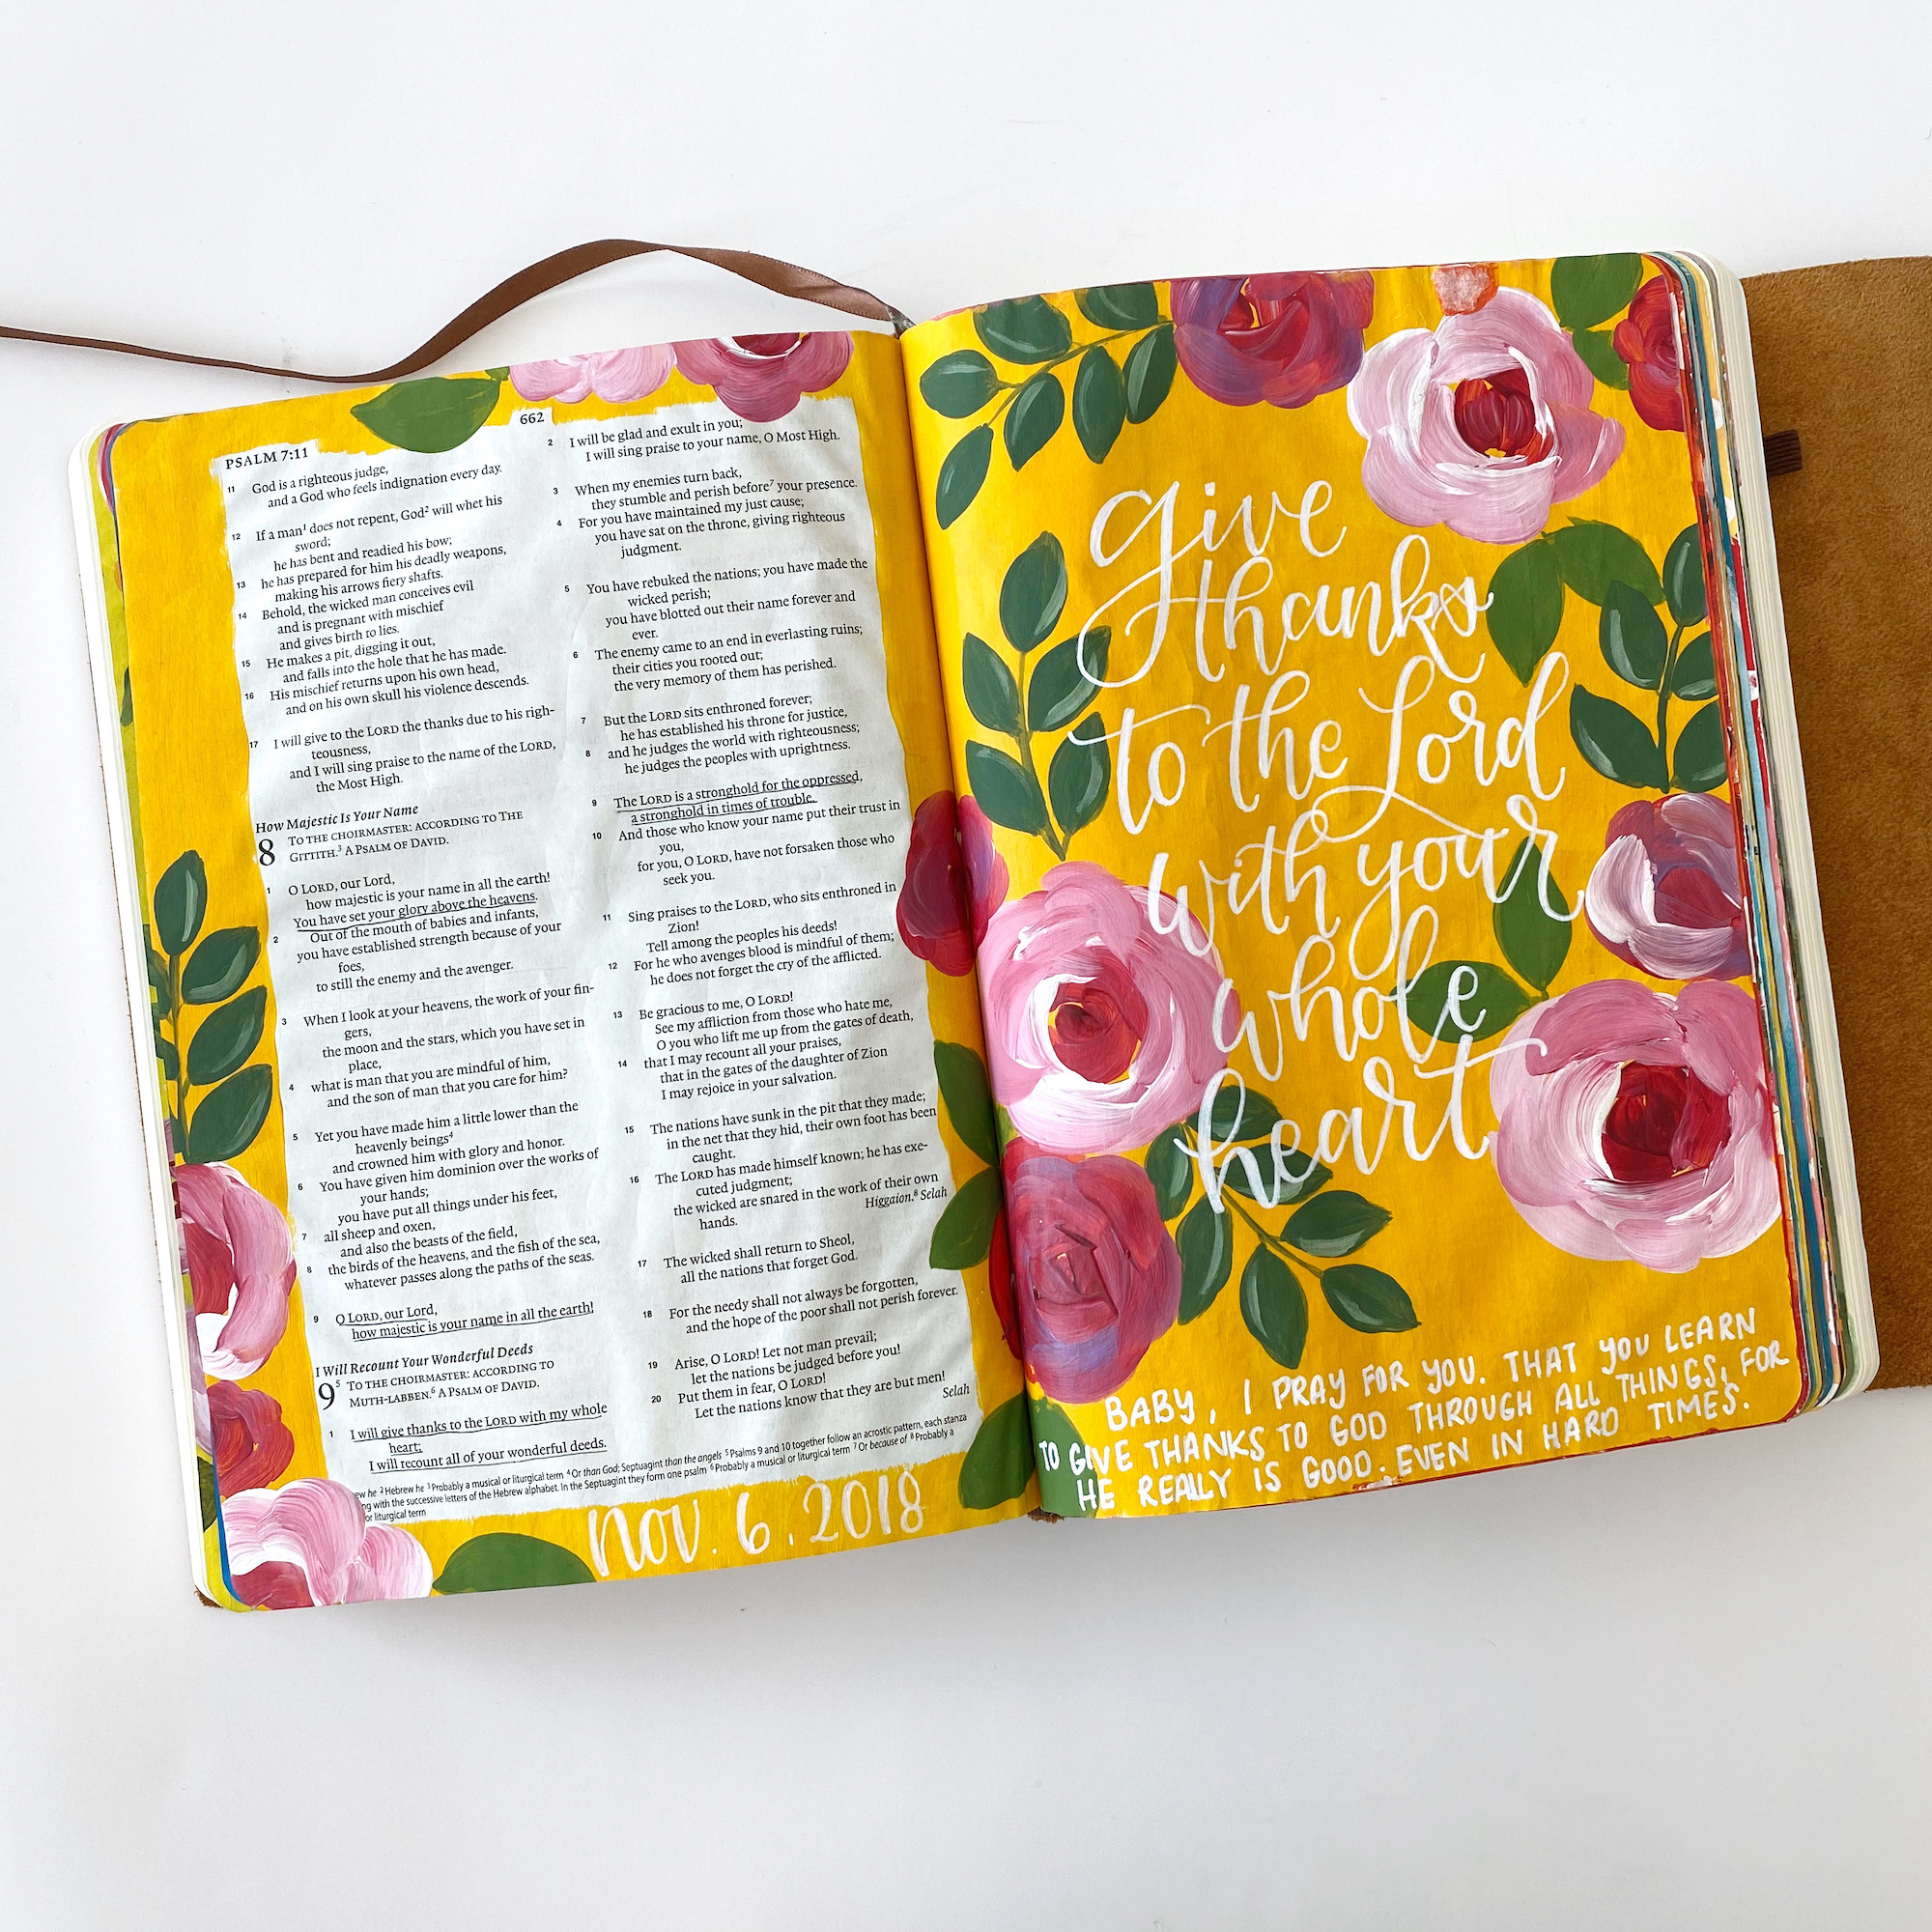 662
PSALM 7:11
11 God is a righteous judge,
and a God who feels indignation every day.
12 If a man¹ does not repent, God² will whet his
sword;
he has bent and readied his bow;
13 he has prepared for him his deadly weapons,
making his arrows fiery shafts.
14 Behold, the wicked man conceives evil
and is pregnant with mischief
and gives birth to lies.
15 He makes a pit, digging it out,
and falls into the hole that he has made.
16 His mischief returns upon his own head,
and on his own skull his violence descends.
17 I will give to the LORD the thanks due to his righ-
teousness,
and I will sing praise to the name of the LORD,
the Most High.
How Majestic Is Your Name
8 TO THE CHOIRMASTER: ACCORDING TO THE
GITTITH.³ A PSALM OF DAVID.
1 O LORD, our Lord,
how majestic is your name in all the earth!
You have set your glory above the heavens.
2 Out of the mouth of babies and infants,
you have established strength because of your
foes,
to still the enemy and the avenger.
3 When I look at your heavens, the work of your fin-
gers,
the moon and the stars, which you have set in
place,
4 what is man that you are mindful of him,
and the son of man that you care for him?
5 Yet you have made him a little lower than the
heavenly beings⁴
and crowned him with glory and honor.
6 You have given him dominion over the works of
your hands;
you have put all things under his feet,
7 all sheep and oxen,
and also the beasts of the field,
8 the birds of the heavens, and the fish of the sea,
whatever passes along the paths of the seas.
9 O LORD, our Lord,
how majestic is your name in all the earth!
I Will Recount Your Wonderful Deeds
9⁵ TO THE CHOIRMASTER: ACCORDING TO
MUTH-LABBEN.⁶ A PSALM OF DAVID.
1 I will give thanks to the LORD with my whole
heart;
I will recount all of your wonderful deeds.
2 I will be glad and exult in you;
I will sing praise to your name, O Most High.
3 When my enemies turn back,
they stumble and perish before⁷ your presence.
4 For you have maintained my just cause;
you have sat on the throne, giving righteous
judgment.
5 You have rebuked the nations; you have made the
wicked perish;
you have blotted out their name forever and
ever.
6 The enemy came to an end in everlasting ruins;
their cities you rooted out;
the very memory of them has perished.
7 But the LORD sits enthroned forever;
he has established his throne for justice,
8 and he judges the world with righteousness;
he judges the peoples with uprightness.
9 The LORD is a stronghold for the oppressed,
a stronghold in times of trouble.
10 And those who know your name put their trust in
you,
for you, O LORD, have not forsaken those who
seek you.
11 Sing praises to the LORD, who sits enthroned in
Zion!
Tell among the peoples his deeds!
12 For he who avenges blood is mindful of them;
he does not forget the cry of the afflicted.
13 Be gracious to me, O LORD!
See my affliction from those who hate me,
O you who lift me up from the gates of death,
14 that I may recount all your praises,
that in the gates of the daughter of Zion
I may rejoice in your salvation.
15 The nations have sunk in the pit that they made;
in the net that they hid, their own foot has been
caught.
16 The LORD has made himself known; he has exe-
cuted judgment;
the wicked are snared in the work of their own
hands. Higgaion.⁸ Selah
17 The wicked shall return to Sheol,
all the nations that forget God.
18 For the needy shall not always be forgotten,
and the hope of the poor shall not perish forever.
19 Arise, O LORD! Let not man prevail;
let the nations be judged before you!
20 Put them in fear, O LORD!
Let the nations know that they are but men!
Selah
he ²Hebrew he ³Probably a musical or liturgical term ⁴Or than God; Septuagint than the angels ⁵Psalms 9 and 10 together follow an acrostic pattern, each stanza
with the successive letters of the Hebrew alphabet. In the Septuagint they form one psalm ⁶Probably a musical or liturgical term ⁷Or because of ⁸Probably a
or liturgical term
Nov. 6, 2018
Give
thanks
to the Lord
with your
whole
heart
BABY, I PRAY FOR YOU. THAT YOU LEARN
TO GIVE THANKS TO GOD THROUGH ALL THINGS, FOR
HE REALLY IS GOOD. EVEN IN HARD TIMES.